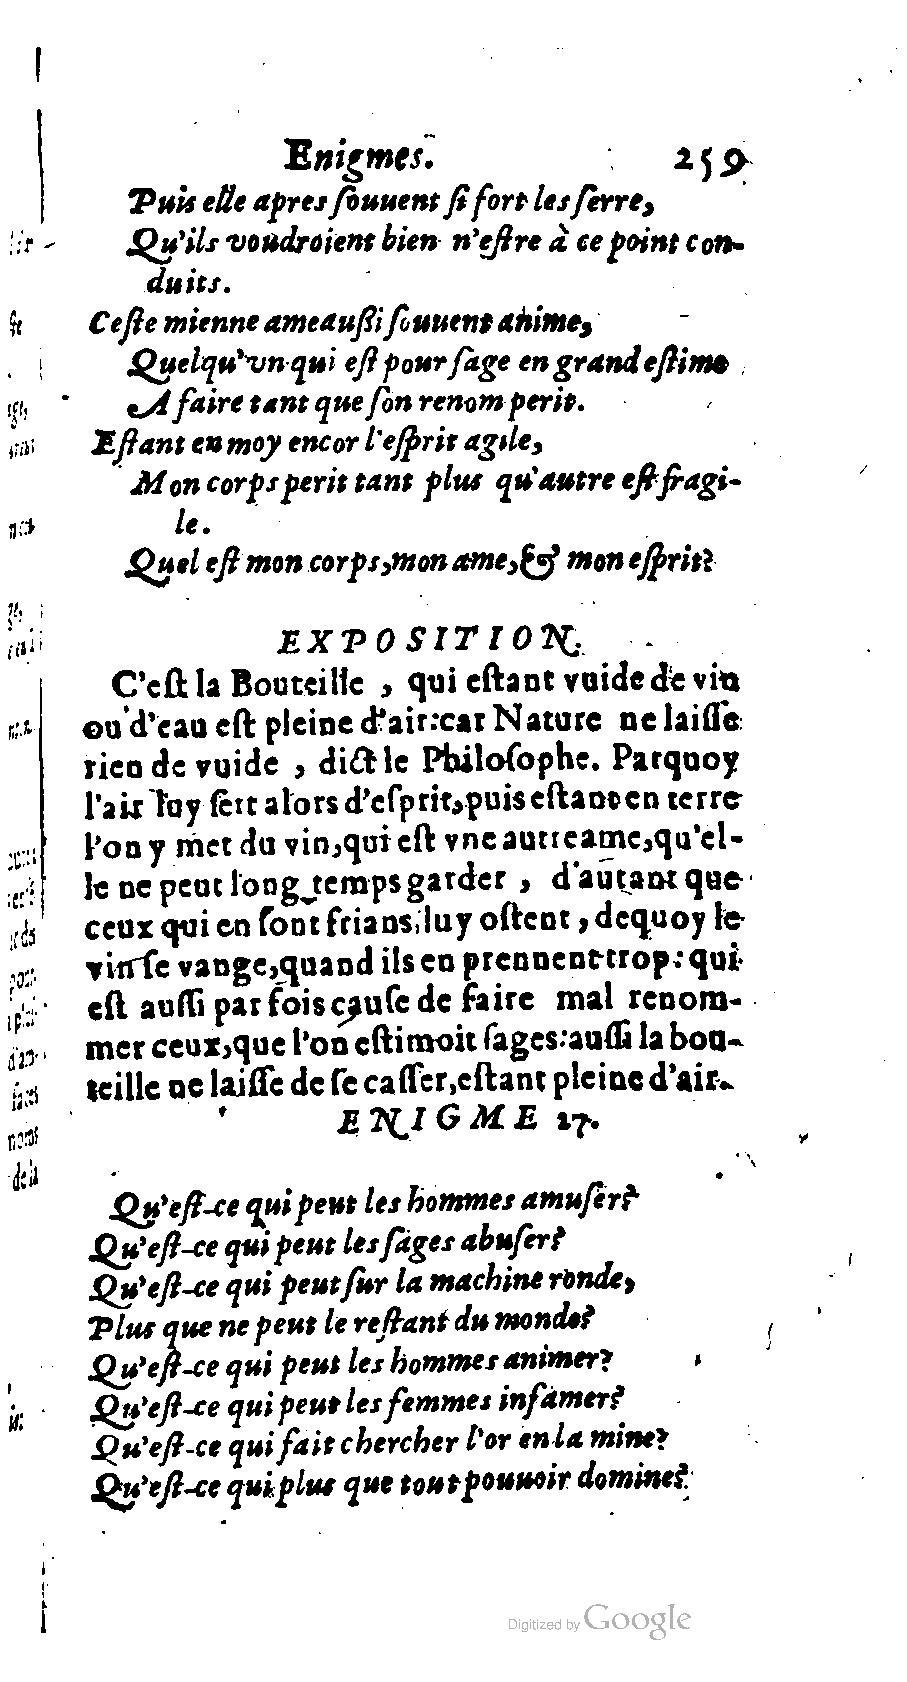 Enigmes. 259
Puis elle apres ſouuent ſi fort les ſerre,
Qu'ils voudroient bien n'eſtre à ce point con-
duits.
Ceſte mienne ame auſſi ſouuent anime,
Quelqu'vn qui eſt pour ſage en grand eſtime
A faire tant que ſon renom perit.
Eſtant en moy encor l'eſprit agile,
Mon corps perit tant plus qu'autre eſt fragi-
le.
Quel eſt mon corps, mon ame, & mon eſprit?
EXPOSITION.
C'eſt la Bouteille, qui eſtant vuide de vin
ou d'eau eſt pleine d'air: car Nature ne laiſſe
rien de vuide, dict le Philoſophe. Parquoy
l'air luy ſert alors d'eſprit, puis eſtant en terre
l'on y met du vin, qui eſt vne autre ame, qu'el-
le ne peut long temps garder, d'autant que
ceux qui en ſont frians, luy oſtent, dequoy le
vin ſe vange, quand ils en prennent trop: qui
eſt auſſi par fois cauſe de faire mal renom-
mer ceux, que l'on eſtimoit ſages: auſſi la bou-
teille ne laiſſe de ſe caſſer, eſtant pleine d'air.
ENIGME 27.
Qu'eſt-ce qui peut les hommes amuſer?
Qu'eſt-ce qui peut les ſages abuſer?
Qu'eſt-ce qui peut ſur la machine ronde,
Plus que ne peut le reſtant du monde?
Qu'eſt-ce qui peut les hommes animer?
Qu'eſt-ce qui peut les femmes infamer?
Qu'eſt-ce qui fait chercher l'or en la mine?
Qu'eſt-ce qui plus que tout pouuoir domine?
Digitized by Google